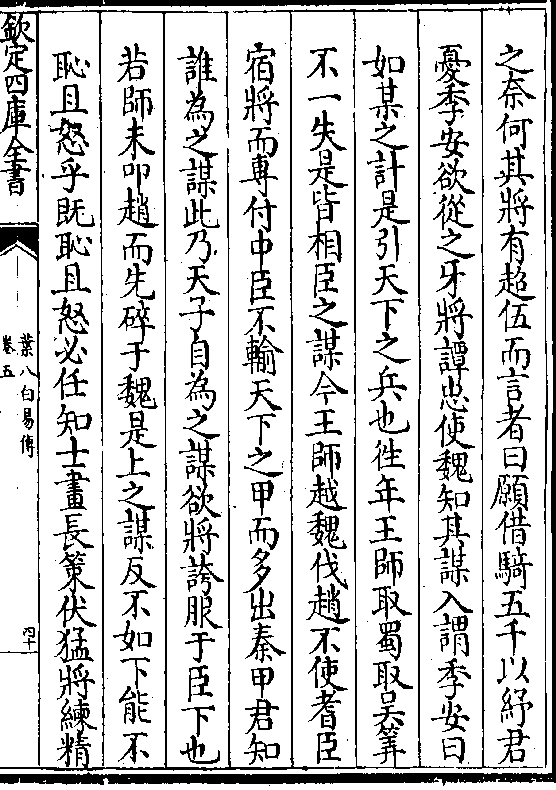 之奈何其將有超伍而言者曰願借騎五千以紓君
憂季安欲從之牙將譚忠使魏知其謀入謂季安曰
如某之計是引天下之兵也徃年王師取蜀取吳筭
不一失是皆相臣之謀今王師越魏伐趙不使耆臣
宿將而專付中臣不輸天下之甲而多出秦甲君知
誰為之謀此乃天子自為之謀欲將誇服于臣下也
若師未叩趙而先碎于魏是上之謀反不如下能不
恥且怒乎既恥且怒必任知士畫長策伏猛將練精
欽定四庫全書
葉八白易傳
卷五
四十